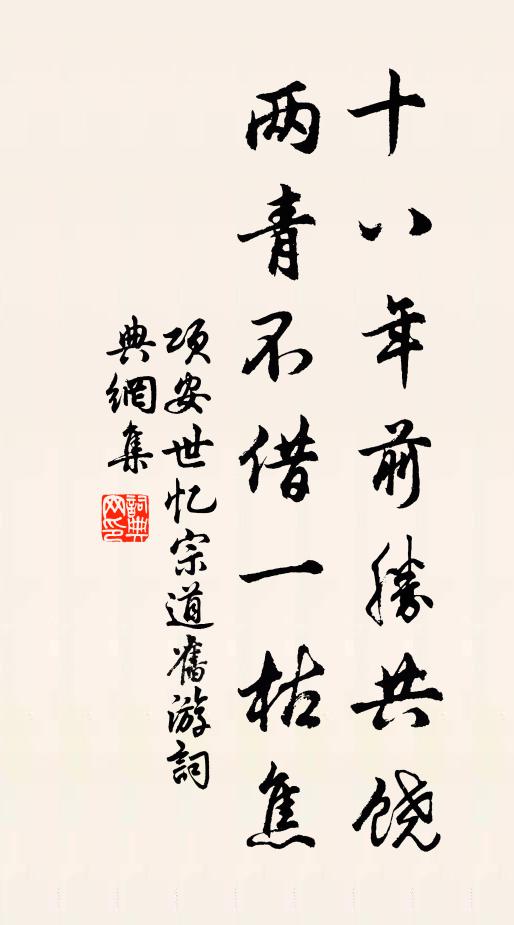 十八年前勝共饶
两青不借一枯焦
项安世忆宗道舊游詞
典網集
詞典网印